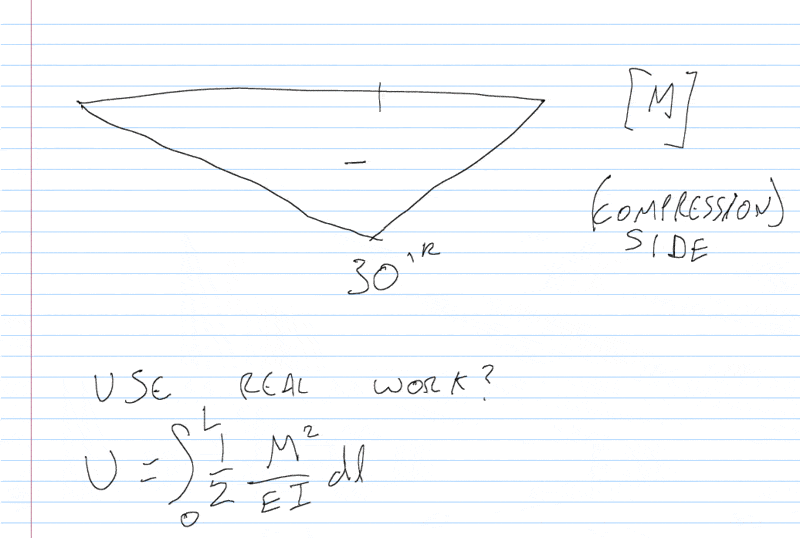 [M]
−
(COMPRESSION)
SIDE
30'ᴷ
USE REAL WORK?
U = ∫₀ᴸ 1/2 M²/EI dl